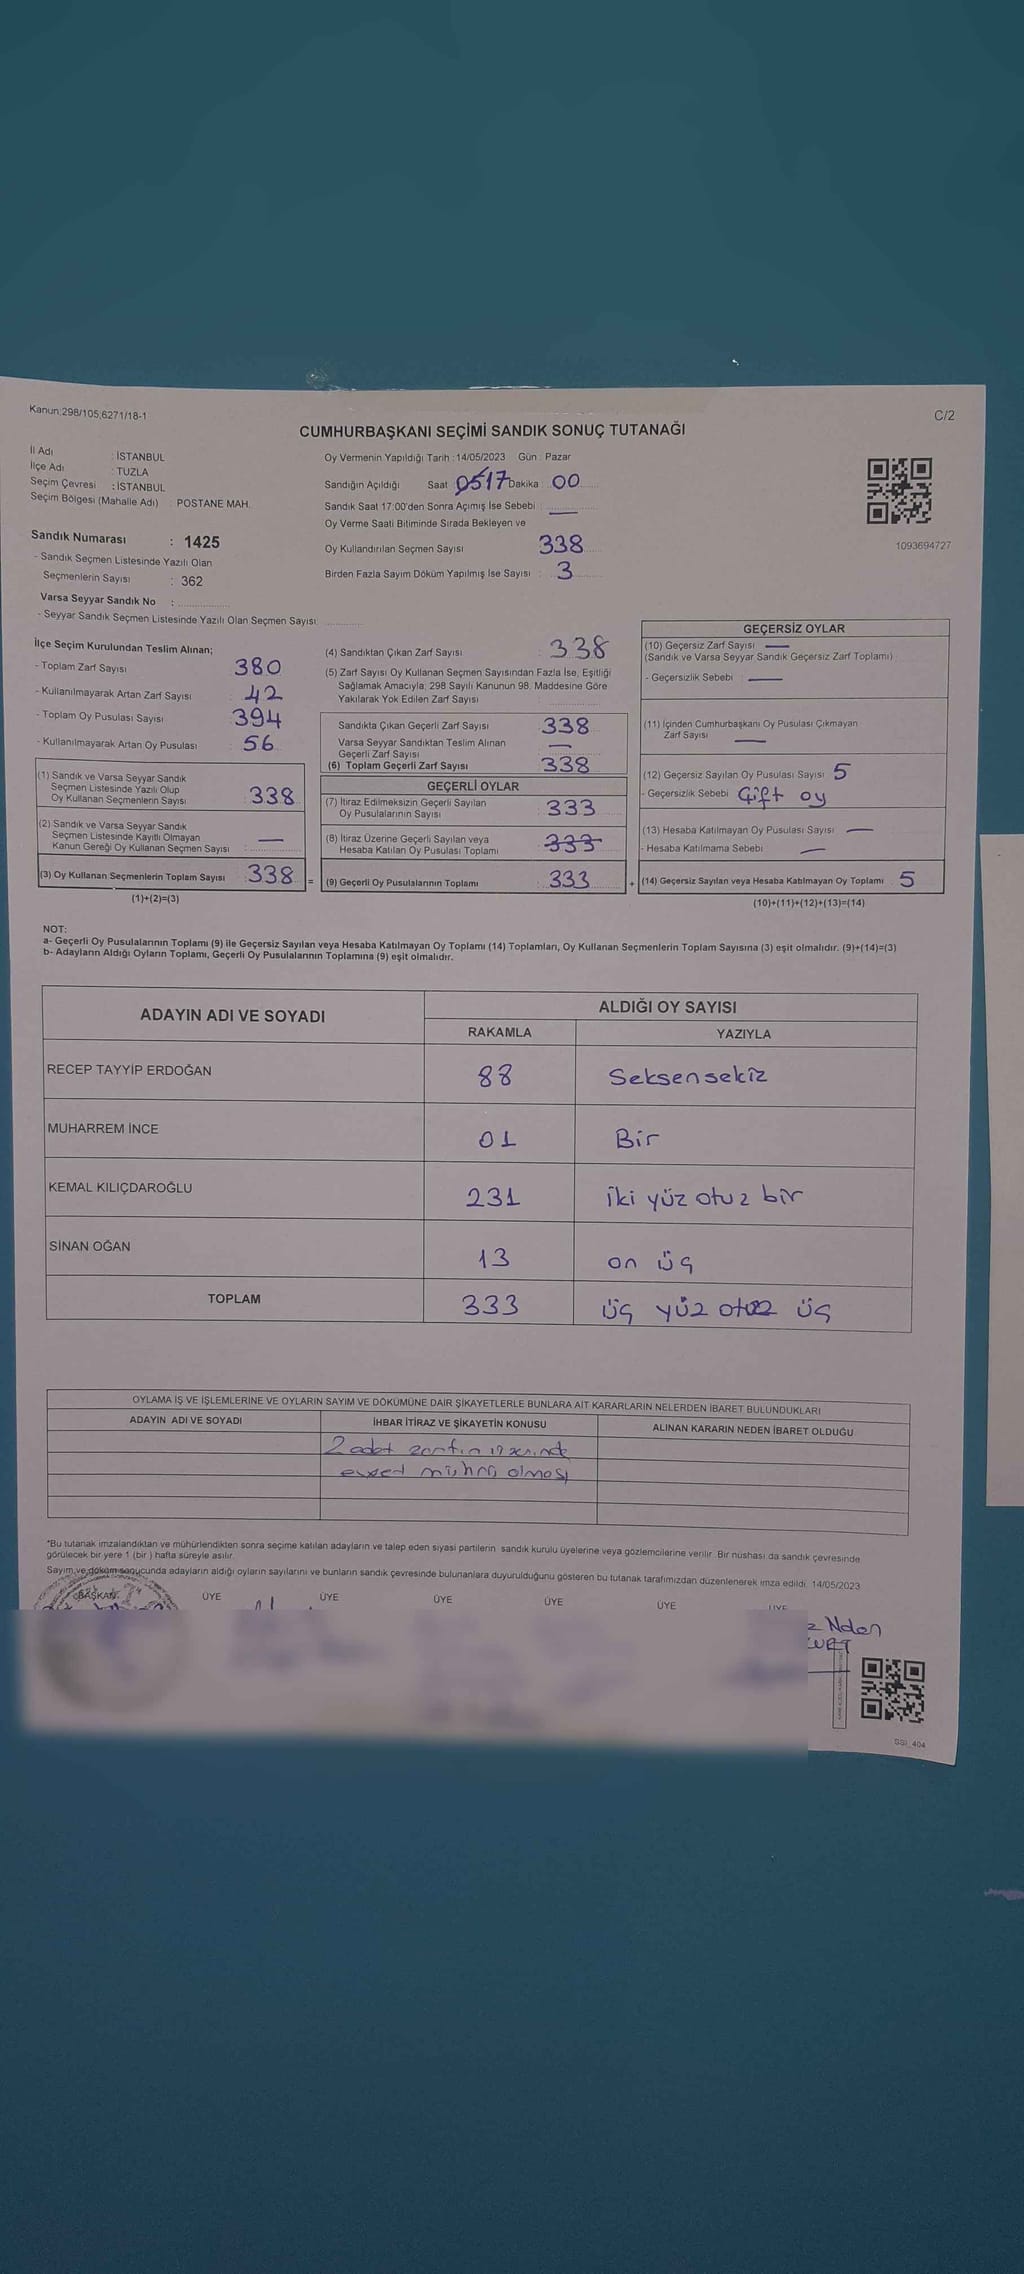 Kanun:298/105,6271/18-1
C/2
CUMHURBAŞKANI SEÇİMİ SANDIK SONUÇ TUTANAĞI
İl Adı : İSTANBUL
İlçe Adı : TUZLA
Seçim Çevresi : İSTANBUL
Seçim Bölgesi (Mahalle Adı) : POSTANE MAH.
Sandık Numarası : 1425
- Sandık Seçmen Listesinde Yazılı Olan
Seçmenlerin Sayısı : 362
Varsa Seyyar Sandık No :
- Seyyar Sandık Seçmen Listesinde Yazılı Olan Seçmen Sayısı:
Oy Vermenin Yapıldığı Tarih : 14/05/2023 Gün : Pazar
Sandığın Açıldığı Saat 0517 Dakika : 00
Sandık Saat 17:00'den Sonra Açımış İse Sebebi : —
Oy Verme Saati Bitiminde Sırada Bekleyen ve
Oy Kullandırılan Seçmen Sayısı 338
Birden Fazla Sayım Döküm Yapılmış İse Sayısı : 3
1093694727
İlçe Seçim Kurulundan Teslim Alınan;
- Toplam Zarf Sayısı 380
- Kullanılmayarak Artan Zarf Sayısı 42
- Toplam Oy Pusulası Sayısı 394
- Kullanılmayarak Artan Oy Pusulası 56
(1) Sandık ve Varsa Seyyar Sandık
Seçmen Listesinde Yazılı Olup
Oy Kullanan Seçmenlerin Sayısı : 338
(2) Sandık ve Varsa Seyyar Sandık
Seçmen Listesinde Kayıtlı Olmayan
Kanun Gereği Oy Kullanan Seçmen Sayısı : —
(3) Oy Kullanan Seçmenlerin Toplam Sayısı : 338 =
(1)+(2)=(3)
(4) Sandıktan Çıkan Zarf Sayısı : 338
(5) Zarf Sayısı Oy Kullanan Seçmen Sayısından Fazla İse, Eşitliği
Sağlamak Amacıyla; 298 Sayılı Kanunun 98. Maddesine Göre
Yakılarak Yok Edilen Zarf Sayısı :
Sandıkta Çıkan Geçerli Zarf Sayısı 338
Varsa Seyyar Sandıktan Teslim Alınan
Geçerli Zarf Sayısı —
(6) Toplam Geçerli Zarf Sayısı 338
GEÇERLİ OYLAR
(7) İtiraz Edilmeksizin Geçerli Sayılan
Oy Pusulalarının Sayısı : 333
(8) İtiraz Üzerine Geçerli Sayılan veya
Hesaba Katılan Oy Pusulası Toplamı : 333
(9) Geçerli Oy Pusulalarının Toplamı : 333 +
GEÇERSİZ OYLAR
(10) Geçersiz Zarf Sayısı —
(Sandık ve Varsa Seyyar Sandık Geçersiz Zarf Toplamı)
- Geçersizlik Sebebi : —
(11) İçinden Cumhurbaşkanı Oy Pusulası Çıkmayan
Zarf Sayısı —
(12) Geçersiz Sayılan Oy Pusulası Sayısı 5
- Geçersizlik Sebebi Çift oy
(13) Hesaba Katılmayan Oy Pusulası Sayısı —
- Hesaba Katılmama Sebebi —
(14) Geçersiz Sayılan veya Hesaba Katılmayan Oy Toplamı 5
(10)+(11)+(12)+(13)=(14)
NOT:
a- Geçerli Oy Pusulalarının Toplamı (9) ile Geçersiz Sayılan veya Hesaba Katılmayan Oy Toplamı (14) Toplamları, Oy Kullanan Seçmenlerin Toplam Sayısına (3) eşit olmalıdır. (9)+(14)=(3)
b- Adayların Aldığı Oyların Toplamı, Geçerli Oy Pusulalarının Toplamına (9) eşit olmalıdır.
ADAYIN ADI VE SOYADI ALDIĞI OY SAYISI
RAKAMLA YAZIYLA
RECEP TAYYİP ERDOĞAN 88 Seksensekiz
MUHARREM İNCE 01 Bir
KEMAL KILIÇDAROĞLU 231 iki yüz otuz bir
SİNAN OĞAN 13 on üç
TOPLAM 333 üç yüz otuz üç
OYLAMA İŞ VE İŞLEMLERİNE VE OYLARIN SAYIM VE DÖKÜMÜNE DAİR ŞİKAYETLERLE BUNLARA AİT KARARLARIN NELERDEN İBARET BULUNDUKLARI
ADAYIN ADI VE SOYADI İHBAR İTİRAZ VE ŞİKAYETİN KONUSU ALINAN KARARIN NEDEN İBARET OLDUĞU
2 adet zarfın üzerinde
evet mührü olması
*Bu tutanak imzalandıktan ve mühürlendikten sonra seçime katılan adayların ve talep eden siyasi partilerin sandık kurulu üyelerine veya gözlemcilerine verilir. Bir nüshası da sandık çevresinde
görülecek bir yere 1 (bir ) hafta süreyle asılır.
Sayım ve döküm sonucunda adayların aldığı oyların sayılarını ve bunların sandık çevresinde bulunanlara duyurulduğunu gösteren bu tutanak tarafımızdan düzenlenerek imza edildi. 14/05/2023
BAŞKAN ÜYE ÜYE ÜYE ÜYE ÜYE ÜYE
SSI_404